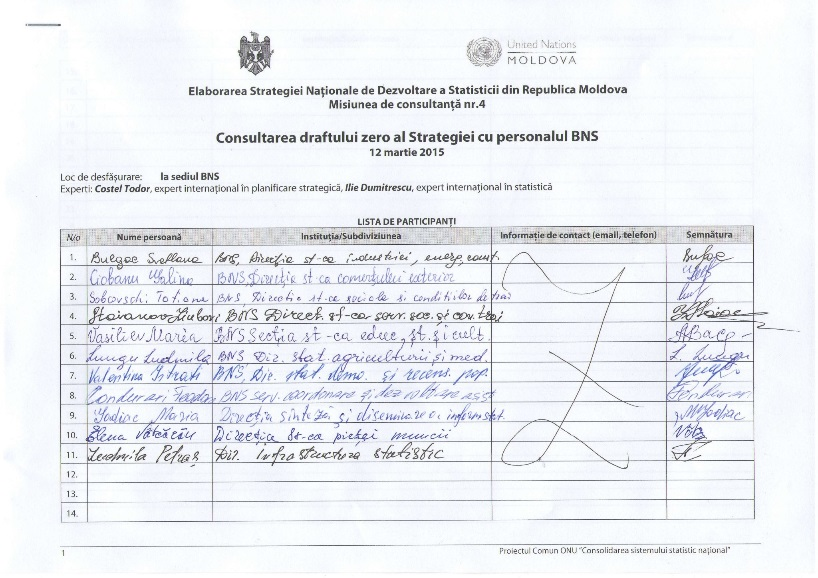 United Nations
MOLDOVA
Elaborarea Strategiei Naționale de Dezvoltare a Statisticii din Republica Moldova
Misiunea de consultanță nr.4
Consultarea draftului zero al Strategiei cu personalul BNS
12 martie 2015
Loc de desfășurare: la sediul BNS
Experți: Costel Todor, expert internațional în planificare strategică, Ilie Dumitrescu, expert internațional în statistică
LISTA DE PARTICIPANȚI
N/o Nume persoană Instituția/Subdiviziunea Informație de contact (email, telefon) Semnătura
1. Bulgac Svetlana BNS, Direcția st-ca industriei, energ, const.
2. Ciobanu Galina BNS, Direcția st-ca comerțului exterior
3. Sobcovschi Tatiana BNS, Direcția st-ca sociale si conditiilor de trai
4. BNS Direcț. st-ca serv. soc. și con. trai
5. Vasiliev Maria BNS Secția st-ca educ, șt. și cult.
6. Lungu Ludmila BNS Dir. stat. agriculturii și med. L. Lungu
7. Valentina Istrati BNS, Dir. stat. demo. și recens. pop.
8. Condurari BNS serv. coordonare și dezvoltare Condurari
9. Maria Direcția sinteză și diseminarea inform stat.
10. Elena Vâtcărău Direcția St-ca pieței muncii
11. Ludmila Petraș Dir. Infrastructura statistic
12.
13.
14.
1 Proiectul Comun ONU "Consolidarea sistemului statistic național"